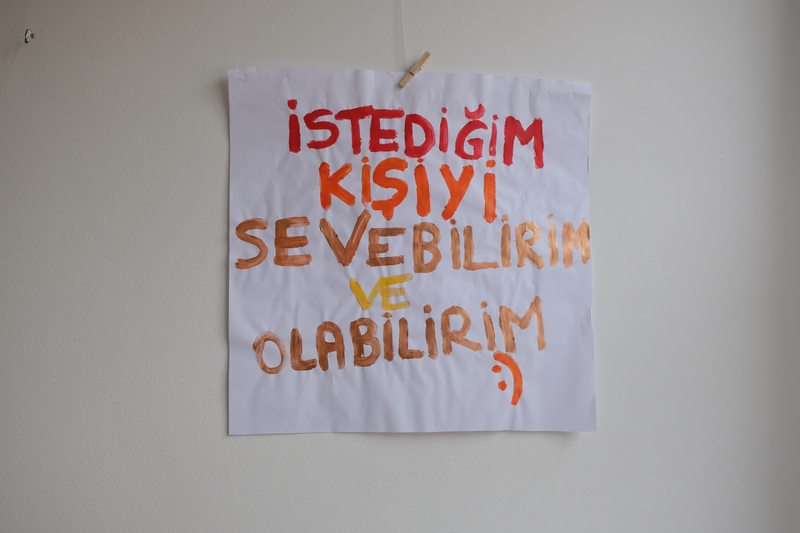 İSTEDİĞİM
KİŞİYİ
SEVEBİLİRİM
VE
OLABİLİRİM
:)